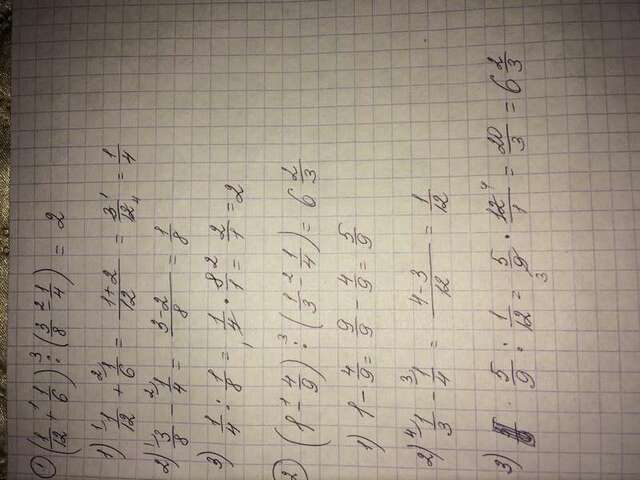 ① (1/12 +¹ 1/6) :³ (3/8 −² 1/4) = 2
1) ¹⁾1/12 + ²⁾1/6 = (1+2)/12 = 3¹/12₄ = 1/4
2) ¹⁾3/8 − ²⁾1/4 = (3−2)/8 = 1/8
3) 1/4 : 1/8 = 1/4₁ · 8²/1 = 2/1 = 2
② (1 −¹ 4/9) :³ (1/3 −² 1/4) = 6 2/3
1) 1 − 4/9 = 9/9 − 4/9 = 5/9
2) ⁴⁾1/3 − ³⁾1/4 = (4−3)/12 = 1/12
3) 5/9 : 1/12 = 5/9₃ · 12⁴/1 = 20/3 = 6 2/3